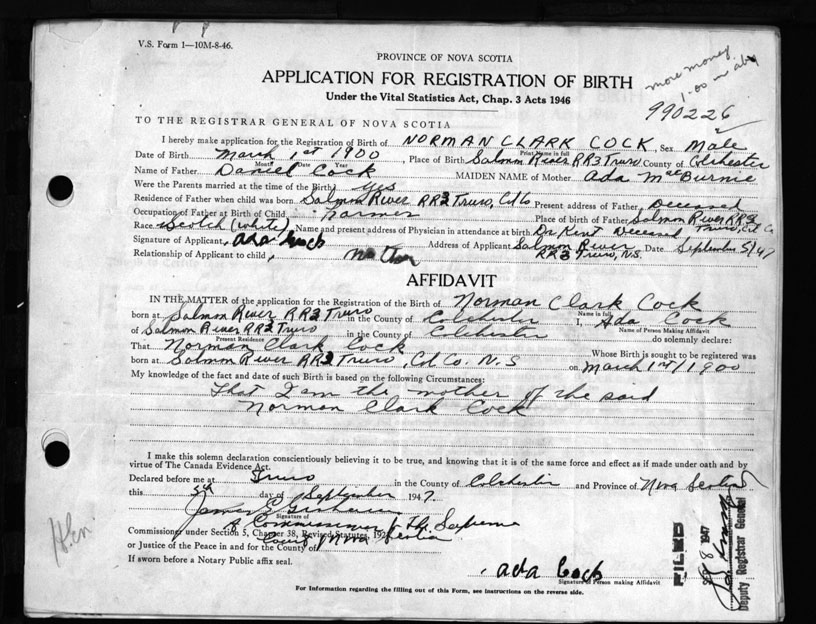 V.S. Form 1—10M-8-46.
PROVINCE OF NOVA SCOTIA
APPLICATION FOR REGISTRATION OF BIRTH
more money
1.00
Under the Vital Statistics Act, Chap. 3 Acts 1946
990226
TO THE REGISTRAR GENERAL OF NOVA SCOTIA
I hereby make application for the Registration of Birth of NORMAN CLARK COCK, Sex Male
Print Name in full
Date of Birth March 1st 1900, Place of Birth Salmon River RR3 Truro County of Colchester
Month Date Year
Name of Father Daniel Cock MAIDEN NAME of Mother Ada MacBurnie
Were the Parents married at the time of the Birth yes
Residence of Father when child was born Salmon River RR3 Truro, Col Co Present address of Father, Deceased
Occupation of Father at Birth of Child Farmer Place of birth of Father, Salmon River RR3
Truro, Col Co
Race Scotch (white) Name and present address of Physician in attendance at birth Dr. Kent Deceased
Signature of Applicant, Ada Cock Address of Applicant Salmon River Date September 5/47
RR3 Truro, N.S.
Relationship of Applicant to child, mother
AFFIDAVIT
IN THE MATTER of the application for the Registration of the Birth of Norman Clark Cock
Name in full
born at Salmon River RR3 Truro in the County of Colchester I, Ada Cock
Name of Person Making Affidavit
of Salmon River RR3 Truro in the County of Colchester do solemnly declare:
Present Residence
That Norman Clark Cock Whose Birth is sought to be registered was
born at Salmon River RR3 Truro, Col Co. N.S on March 1st/1900
My knowledge of the fact and date of such Birth is based on the following Circumstances:
That I am the mother of the said
Norman Clark Cock
I make this solemn declaration conscientiously believing it to be true, and knowing that it is of the same force and effect as if made under oath and by
virtue of The Canada Evidence Act.
Declared before me at Truro in the County of Colchester and Province of Nova Scotia
this 5th day of September 1947.
James E
Signature of
A Commissioner of the Supreme
Commissioner under Section 5, Chapter 38, Revised Statutes, 192
Court of Nova Scotia
or Justice of the Peace in and for the County of
If sworn before a Notary Public affix seal.
Ada Cock
Signature of Person making Affidavit
For Information regarding the filling out of this Form, see instructions on the reverse side.
FILED
8 1947
Deputy Registrar General